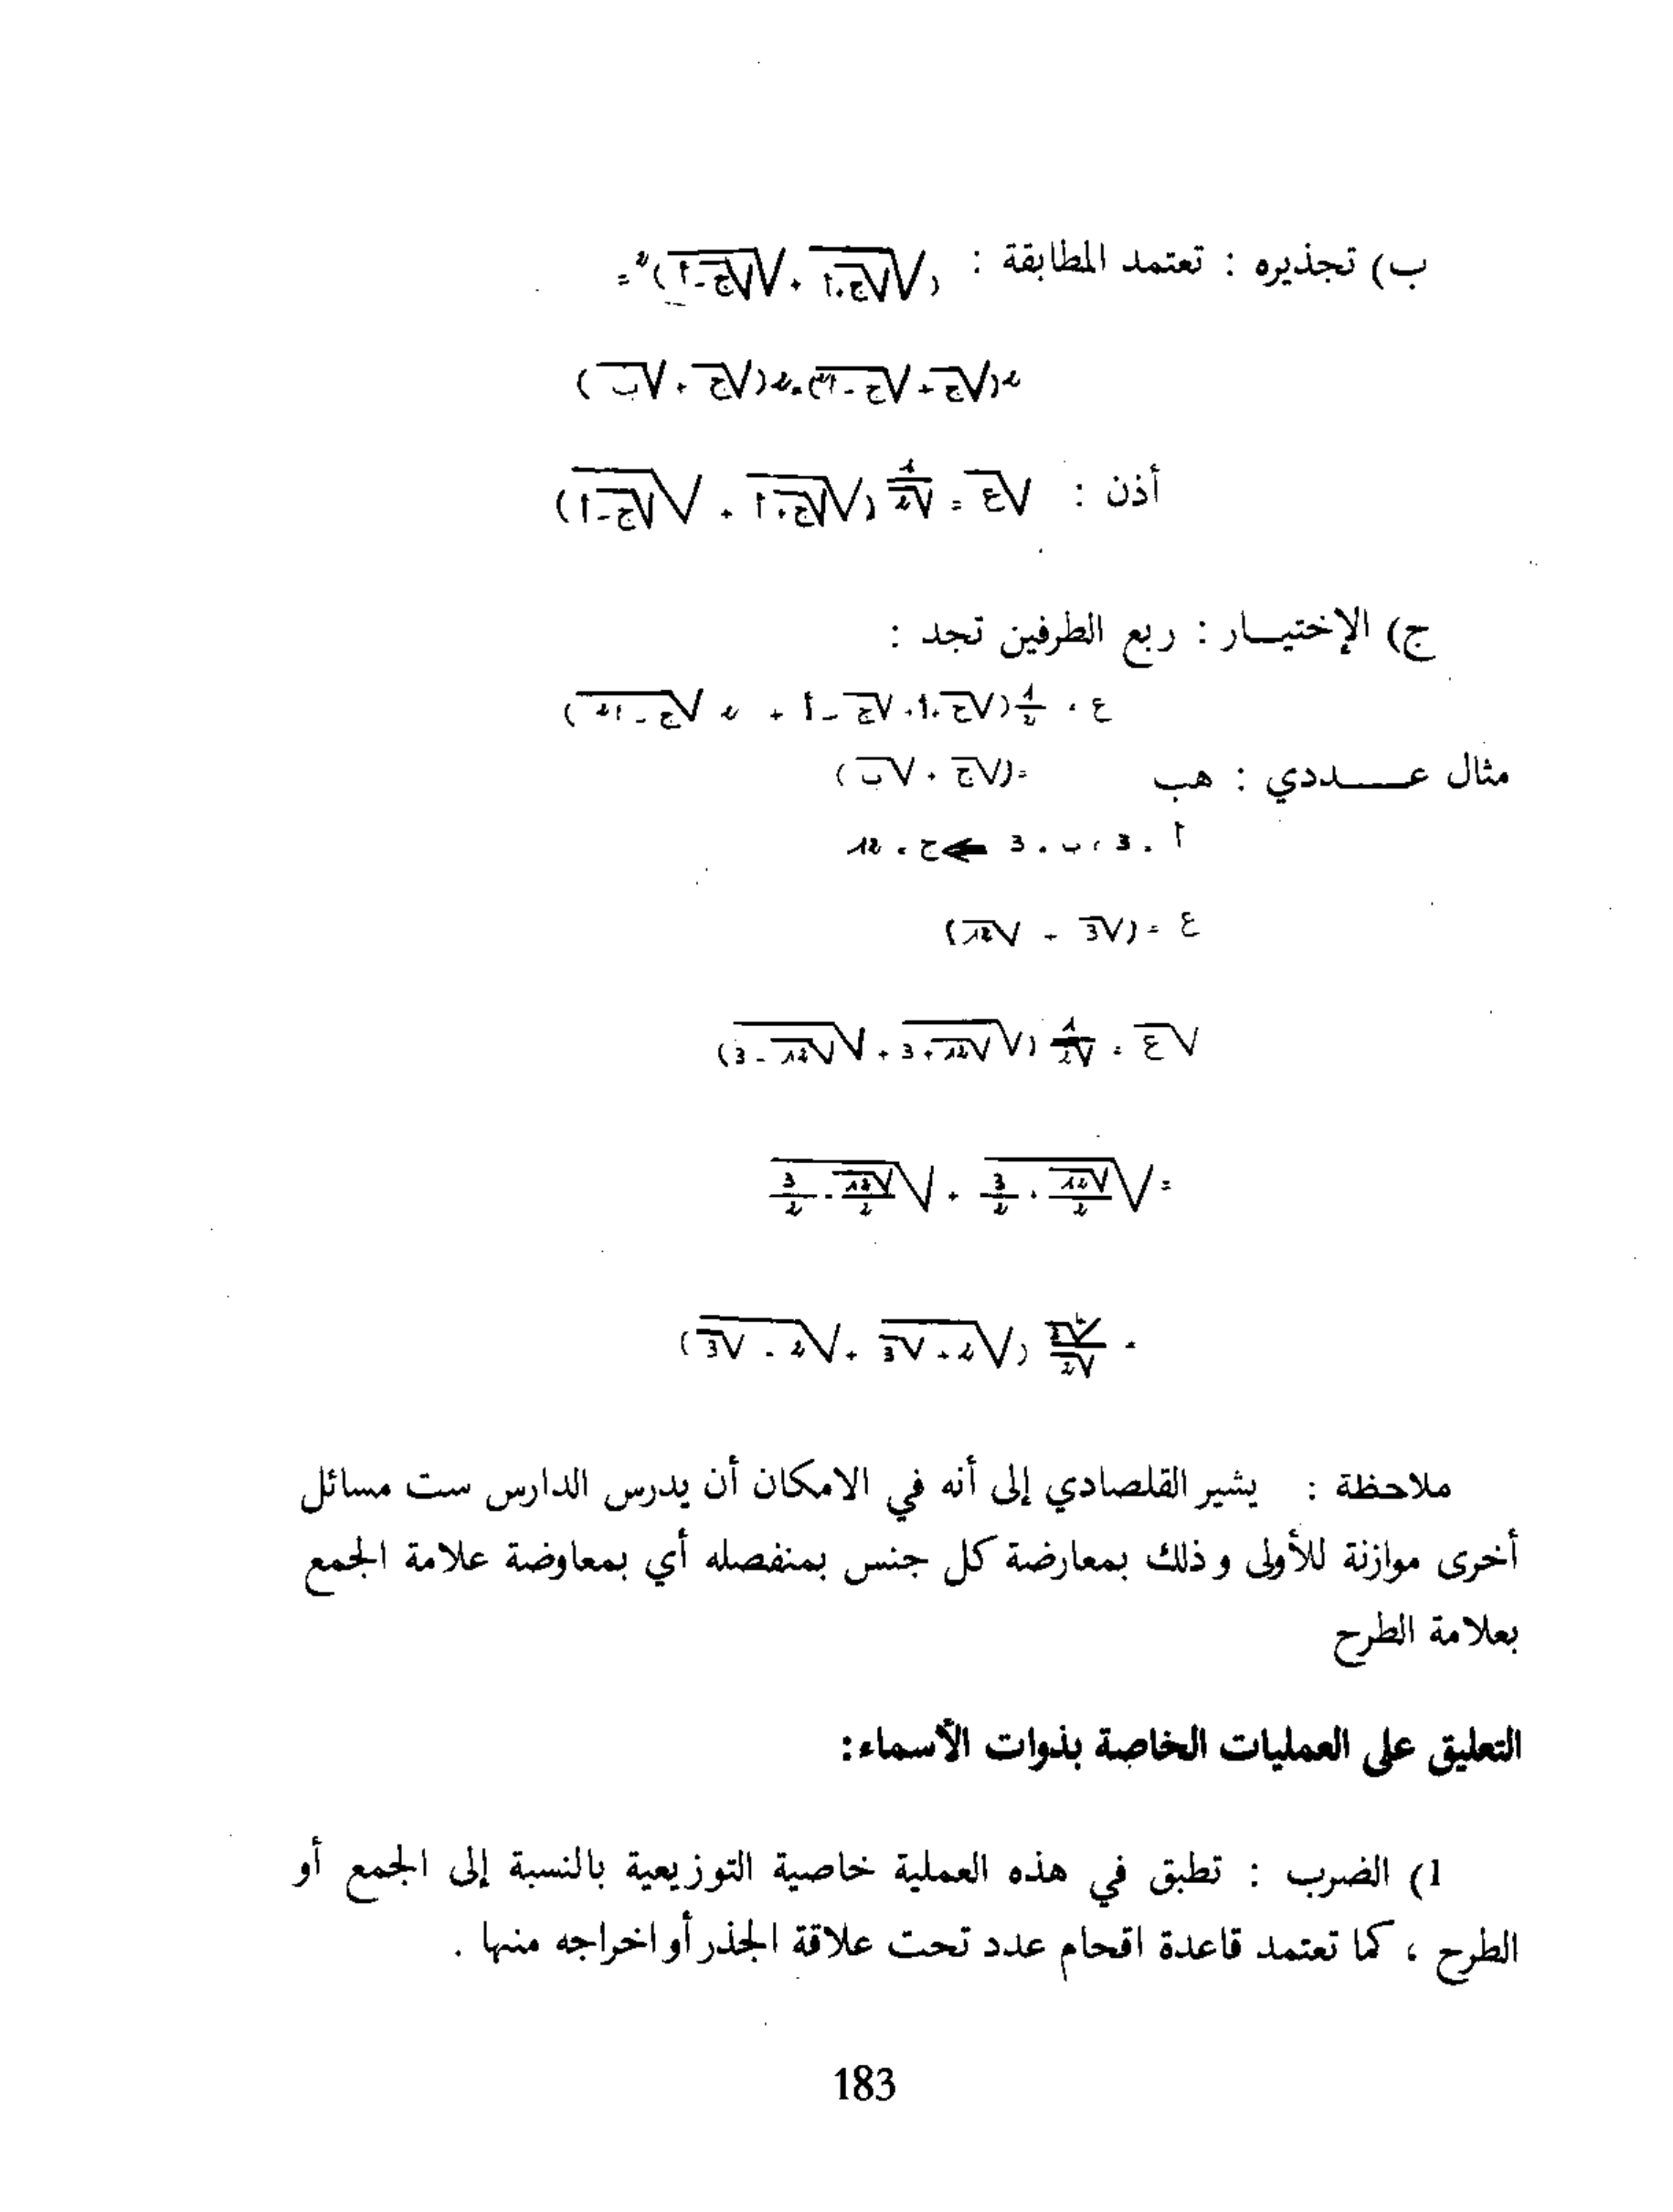 ب) تجذيره : تعتمد المطابقة : (√(√ج + أ) + √(√ج - أ))² =
2(√ج + √(ج - أ²)) = 2(√ج + √ب)
أذن : √ع = 1/√2 (√(√ج + أ) + √(√ج - أ))
ج) الإختيـار : ربع الطرفين تجد :
ع = 1/2 (√ج + أ + √ج - أ + 2 √(ج - أ²))
مثال عــددي : هب =(√ج + √ب)
أ = 3 ، ب = 3 ⇐ ج = 12
ع = (√3 + √12)
√ع = 1/√2 (√(√12 + 3) + √(√12 - 3))
= √(√12/2 + 3/2) + √(√12/2 - 3/2)
(√(2 + √3) + √(2 - √3))
ملاحظة : يشير القلصادي إلى أنه في الامكان أن يدرس الدارس ست مسائل
أخرى موازنة للأولى وذلك بمعارضة كل جنس بمنفصله أي بمعاوضة علامة الجمع
بعلامة الطرح
التعليق على العمليات الخاصة بذوات الأسماء:
1) الضرب : تطبق في هذه العملية خاصية التوزيعية بالنسبة إلى الجمع أو
الطرح ، كما تعتمد قاعدة اقحام عدد تحت علاقة الجذر أو اخراجه منها .
183